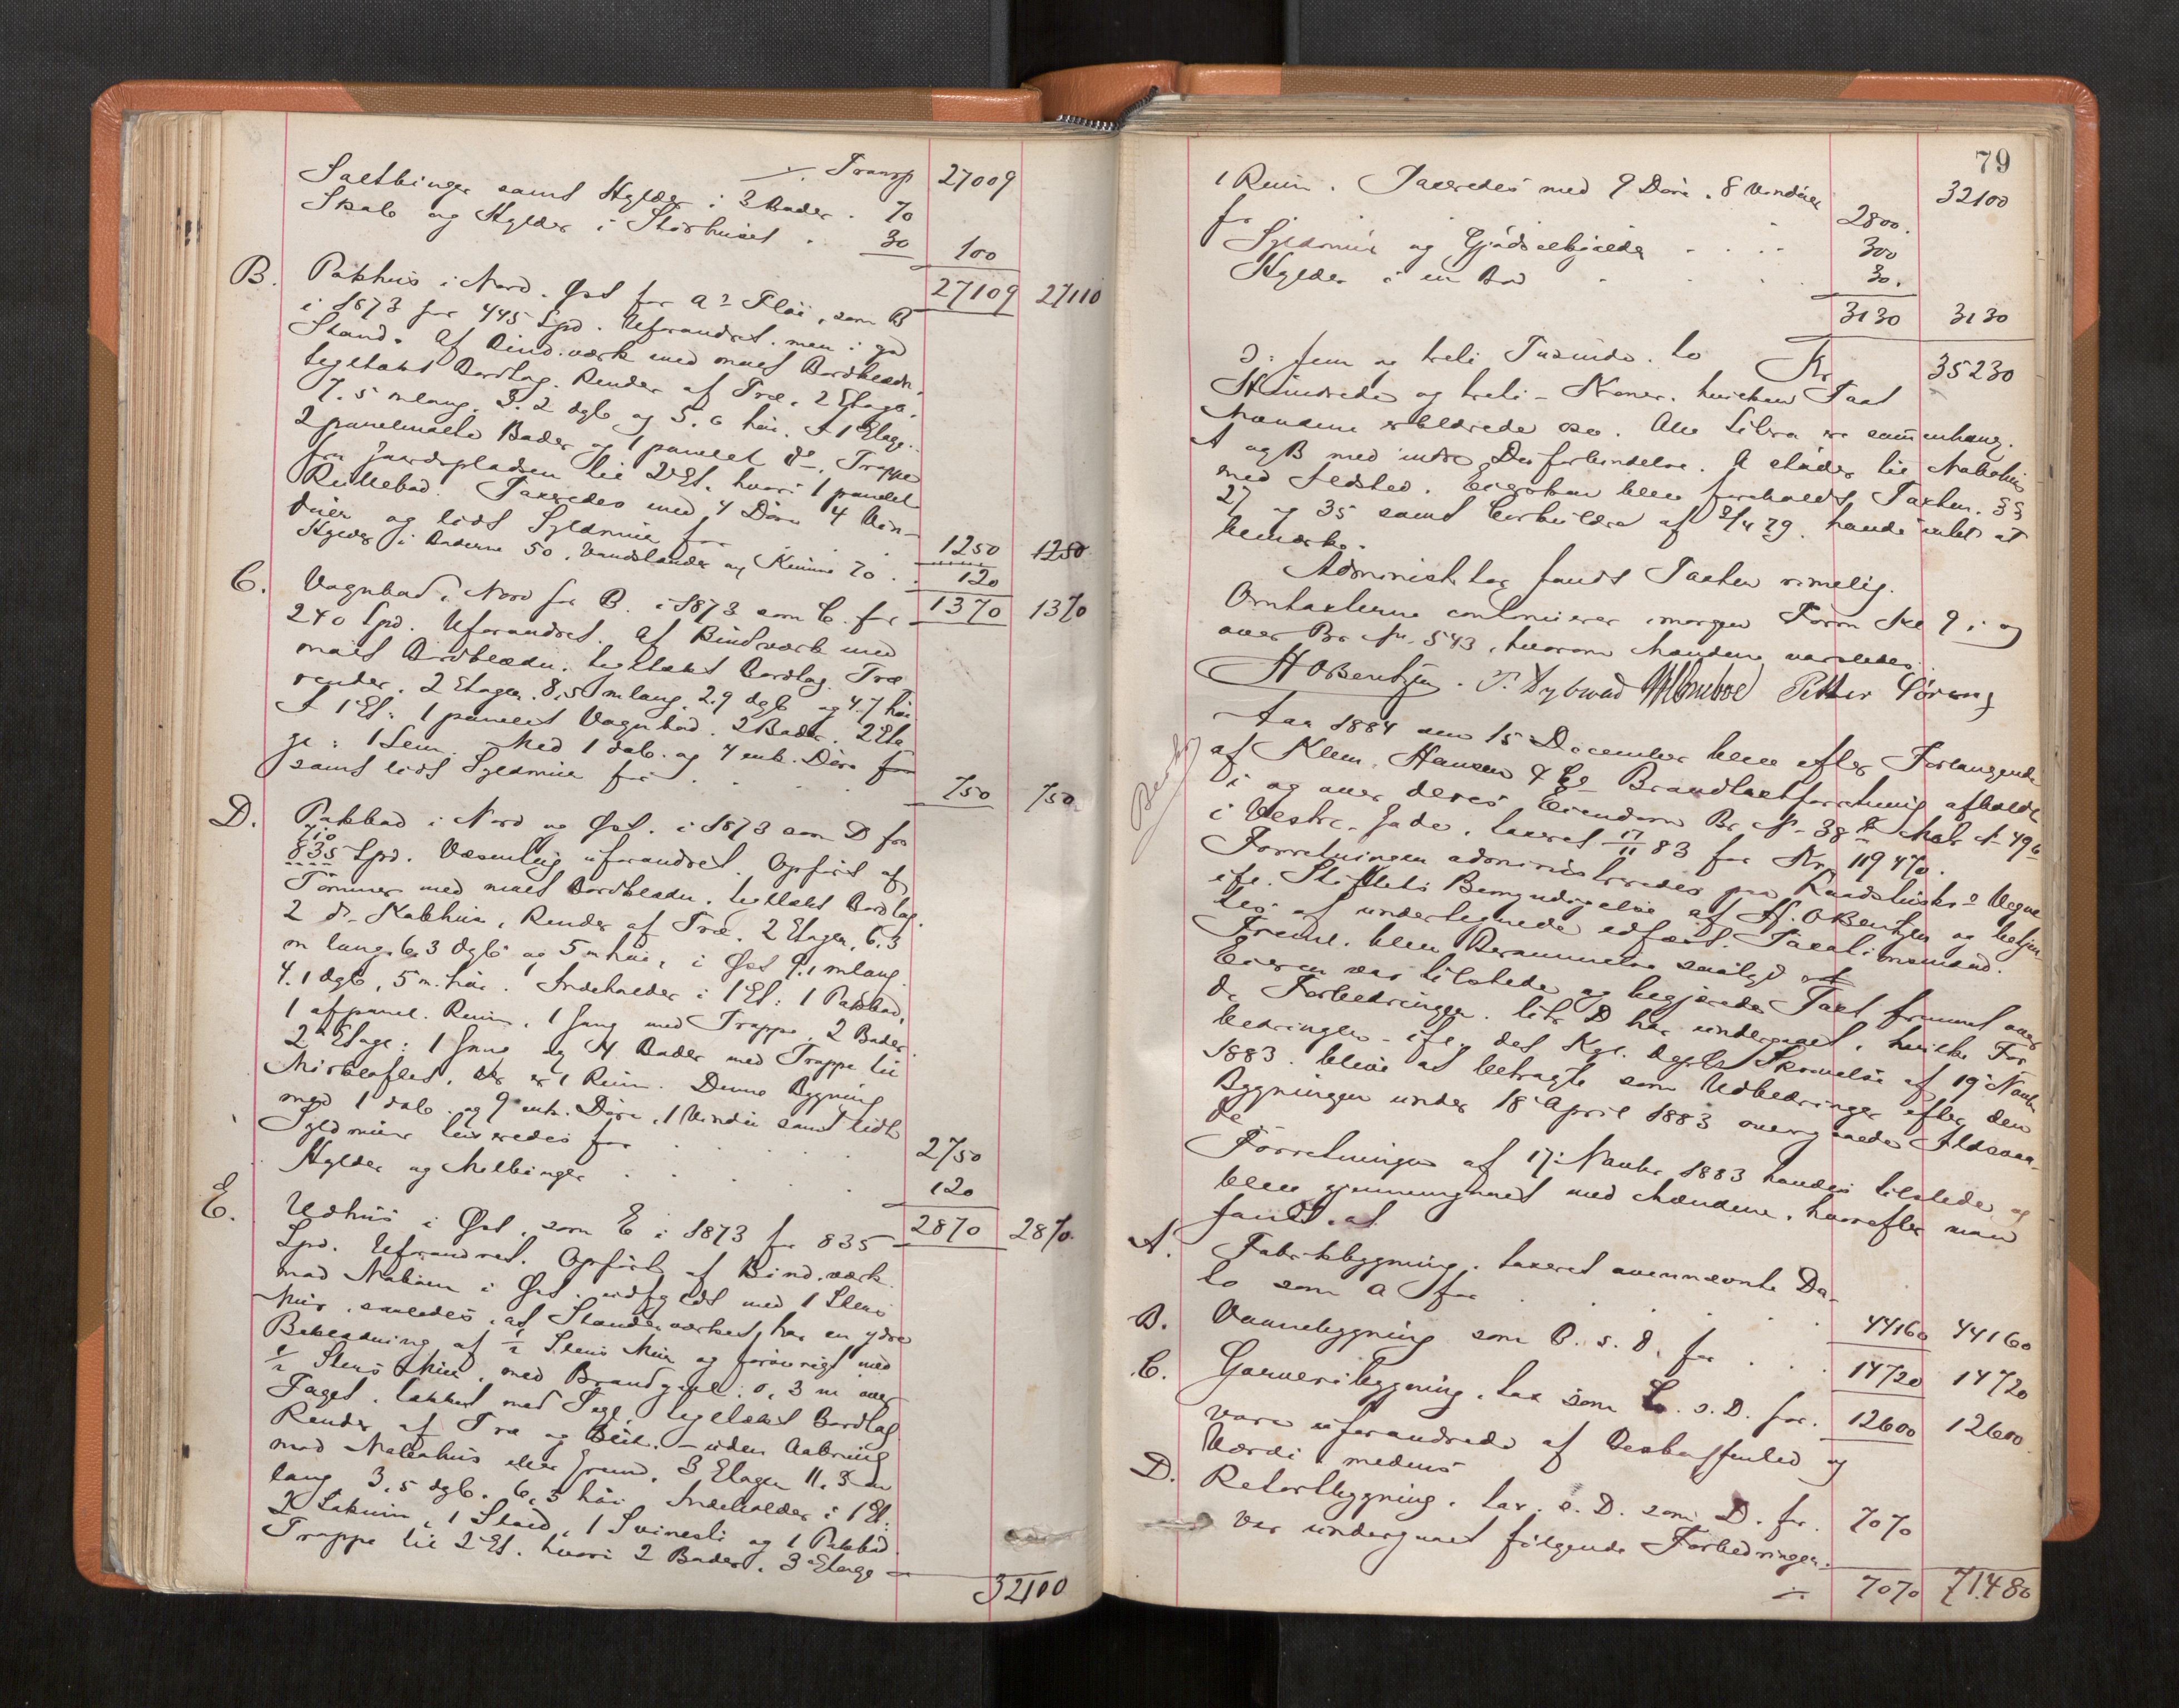 ./. Transp 27009
Saltbinger samt Hylder i 3 Boder. 70
Skab og Hylder i Størhuset . 30 100
27109 27110
B. Pakhus i Nord-Øst for A's Fløi, som B
i 1873 for 445 Spd. Uforandret, men i god
Stand. Af Bindværk med malt Bordklædn.
teglækt Bordtag. Render af Træ. 2 Etager,
7.5 m lang, 3.2 dyb og 5.6 høi. I 1 Etage:
2 panelmalte Boder og 1 panelet do. Trappe
fra Gaardspladsen til 2 Et. hvori 1 panelet
Rullebod. Taxeredes med 4 Døre 4 Vin-
duer og lidt Gydemur for . . . 1250 1250
Hylder i Boderne 50, Vandstander og Rende 70 . . 120
1370 1370
C. Vognbod i Nord for B. i 1873 som C. for
240 Spd. Uforandret. Af Bindværk med
malt Bordklædn. teglækt Bordtag. Træ
render. 2 Etager. 8.5 m lang, 2.9 dyb og 4.7 høi
I 1 Et: 1 panelet Vognbod. 2 Boder. 2 Eta-
ge: 1 Lem. Med 1 dob. og 4 enk. Døre for
samt lidt Gydemur for . . . . 750 750
D. Pakbod i Nord og Øst. i 1873 som D for
710
835 Spd. Væsentlig uforandret. Opført af
Tømmer med malt Bordklædn. teglækt Bordtag.
2 do Kakhus, Render af Træ. 2 Etager, 6.3
m lang, 6.3 dyb og 5 m høi, i Øst 9.1 m lang
4.1 dyb, 5 m. høi. Indeholder i 1 Et: 1 Pakbod,
1 afpanel. Rum, 1 Gang med Trappe, 2 Boder.
2den Etage: 1 Gang og 4 Boder med Trappe til
Mørkloftet, der er 1 Rum. Denne Bygning
med 1 dob. og 9 enk. Døre, 1 Vindu samt lidt
Gydemur taxeredes for . . . . 2750
Hylder og Melbinger . . . . 120
2870 2870.
E. Udhus i Øst, som E i 1873 for 835
Spd. Uforandret. Opført af Bindværk
mod Naboen i Øst, udfyldt med 1 Stens
Mur, saaledes, at Standerværket har en ydre
Beklædning af ½ Stens Mur og forøvrigt med
½ Stens Mur, med Brandgavl: 0,3 m over
Taget, tækket med Tegl, teglækt Bordtag
Render af Træ og Blik. – uden Aabning
mod Nabohus eller Grund. 3 Etager 11.3 m
lang 3.5 dyb. 6.3 høi. Indeholder i 1 Et:
2 Lokum, 1 Stald, 1 Svinesti og 1 Pakbod.
Trappe til 2 Et. hvori 2 Boder. 3 Etage
32100
79
1 Rum. Taxeredes med 9 Døre, 8 Vinduer 32100
for 2800.
Gydemur og Gjødselkjælder . . . . 300
Hylder i en Bod . . . 30.
3130 3130
Kr 35230
ↄ: fem og treti Tusinde, to
Hundrede og treti – Kroner, hvilken Taxt
Mændene erklærede osv. Alle Litra er sammenhæng.
A og B med indre Dørforbindelse. A støder til Nabohus
med Ildsted. Eierskan blev foreholdt Taxtln. §§
27 og 35 samt Cirkulære af 2/4 79. havde intet at
bemærke.
Administrator fandt Taxten rimelig.
Omtaxterne continuerer imorgen Form. Kl. 9 i og
over Br. No. 543, hvorom Mændene varsledes.
H O Bentzen. P. Dybwad Peder Sørensen
Aar 1884 den 15 December blev efter Forlangende
af Klem. Hansen & Co Brandtaxtforretning afholdt
i og over deres Eiendom Br. No. 38 Mat. No. 496
i Vestre Gade, taxeret 17/11 83 for Kr. 119470.
Forretningen administreredes paa Raadstuens Vegne
ifl. Stiftets Bemyndigelse af H. O Bentzen og betjen-
tes af undertegnede edfæst. Taxationsmænd.
Freml. blev Berammelse saalyd
Eieren var tilstede og begjærede Taxt fremmet over
de Forbedringer, litr D har undergaaet, hvilke For-
bedringer – ifl. det Kgl. Depts Skrivelse af 19 Novbr
1883. blive at betragte som Udbedringer efter den
Bygningen under 18 April 1883 overgaaede Ildsvaa-
de
Forretningen af 17: Novbr 1883 havdes tilstede og
blev gjennemgaaet med Mændene, hvorefter man
fandt, at
A. Fabrikbygning, taxeret ovennævnte Da-
to som A for . . . . 44160 44160
B. Vannebygning som B. s. D. for . . . 14720 14720
C. Garveribygning, tax som C. s. D. for. 12600 12600
vare uforandrede af Beskaffenhed og
Værdi medens
D. Retortbygning, tax. s. D. som D. for. 7070
var undergaaet følgende Forbedringer.
./. 7070 71480